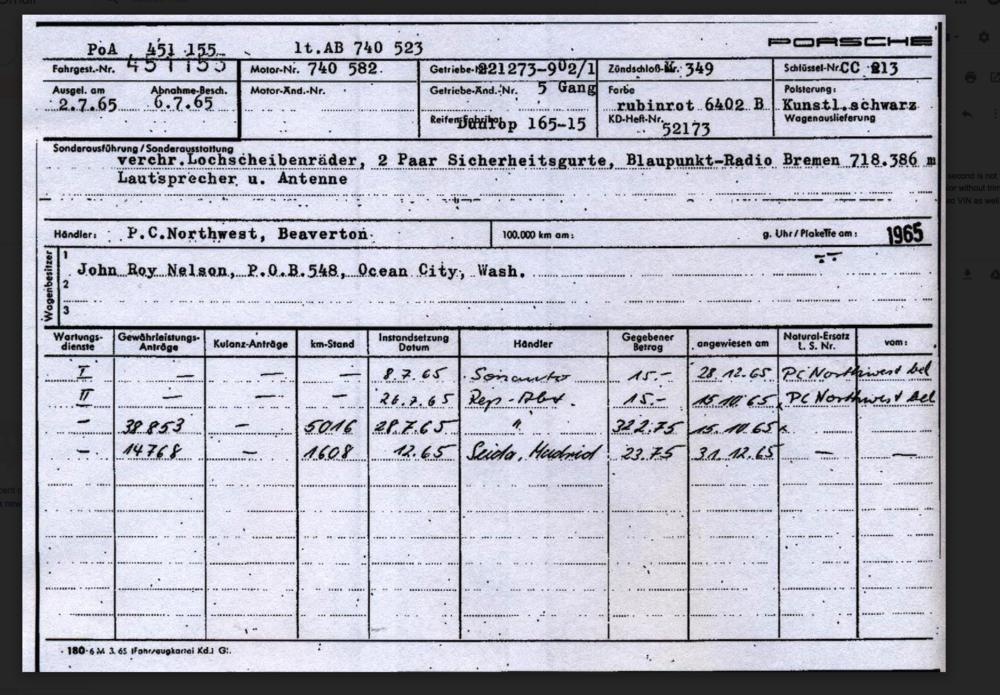 PoA 451 155 lt.AB 740 523 PORSCHE
Fahrgest.-Nr. 451155 Motor-Nr. 740 582 Getriebe-Nr. 221273-902/1 Zündschloß-Nr. 349 Schlüssel-Nr. CC 213
Ausgel. am Abnahme-Besch. Motor-Änd.-Nr. Getriebe-Änd.-Nr. 5 Gang Farbe Polsterung:
2.7.65 6.7.65 rubinrot 6402 B Kunstl.schwarz
Reifenfabrikat Dunlop 165-15 KD-Heft-Nr. 52173 Wagenauslieferung
Sonderausführung / Sonderausstattung
verchr.Lochscheibenräder, 2 Paar Sicherheitsgurte, Blaupunkt-Radio Bremen 718.386 m
Lautsprecher u. Antenne
Händler: P.C.Northwest, Beaverton 100.000 km am: g. Uhr / Plakette am: 1965
Wagenbesitzer
1
John Roy Nelson, P.O.B.548, Ocean City, Wash.
2
3
Wartungs-dienste Gewährleistungs-Anträge Kulanz-Anträge km-Stand Instandsetzung Datum Händler Gegebener Betrag angewiesen am Natural-Ersatz L. S. Nr. vom:
I — — — 8.7.65 Sonauto 15.- 28.12.65 PC Northwest bel
II — — — 26.7.65 Rep-Abt. 15.- 15.10.65 PC Northwest bel
— 38853 — 5016 28.7.65 " 322.75 15.10.65
— 14768 — 1608 12.65 Seida, Madrid 23.75 31.12.65 — —
180-6 M 3. 65 (Fahrzeugkartei Kd.) G.